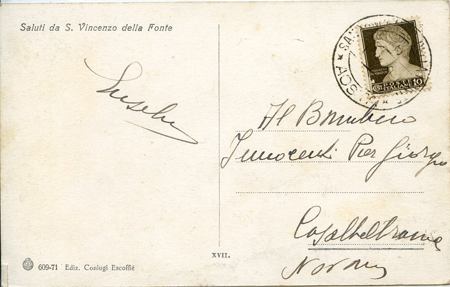 Saluti da S. Vincenzo della Fonte
AOSTA
10
Al Bambino
Innocenti Pier Giorgio
Casalbeltrame
Novara
XVII.
609-71 Ediz. Coniugi Escoffié